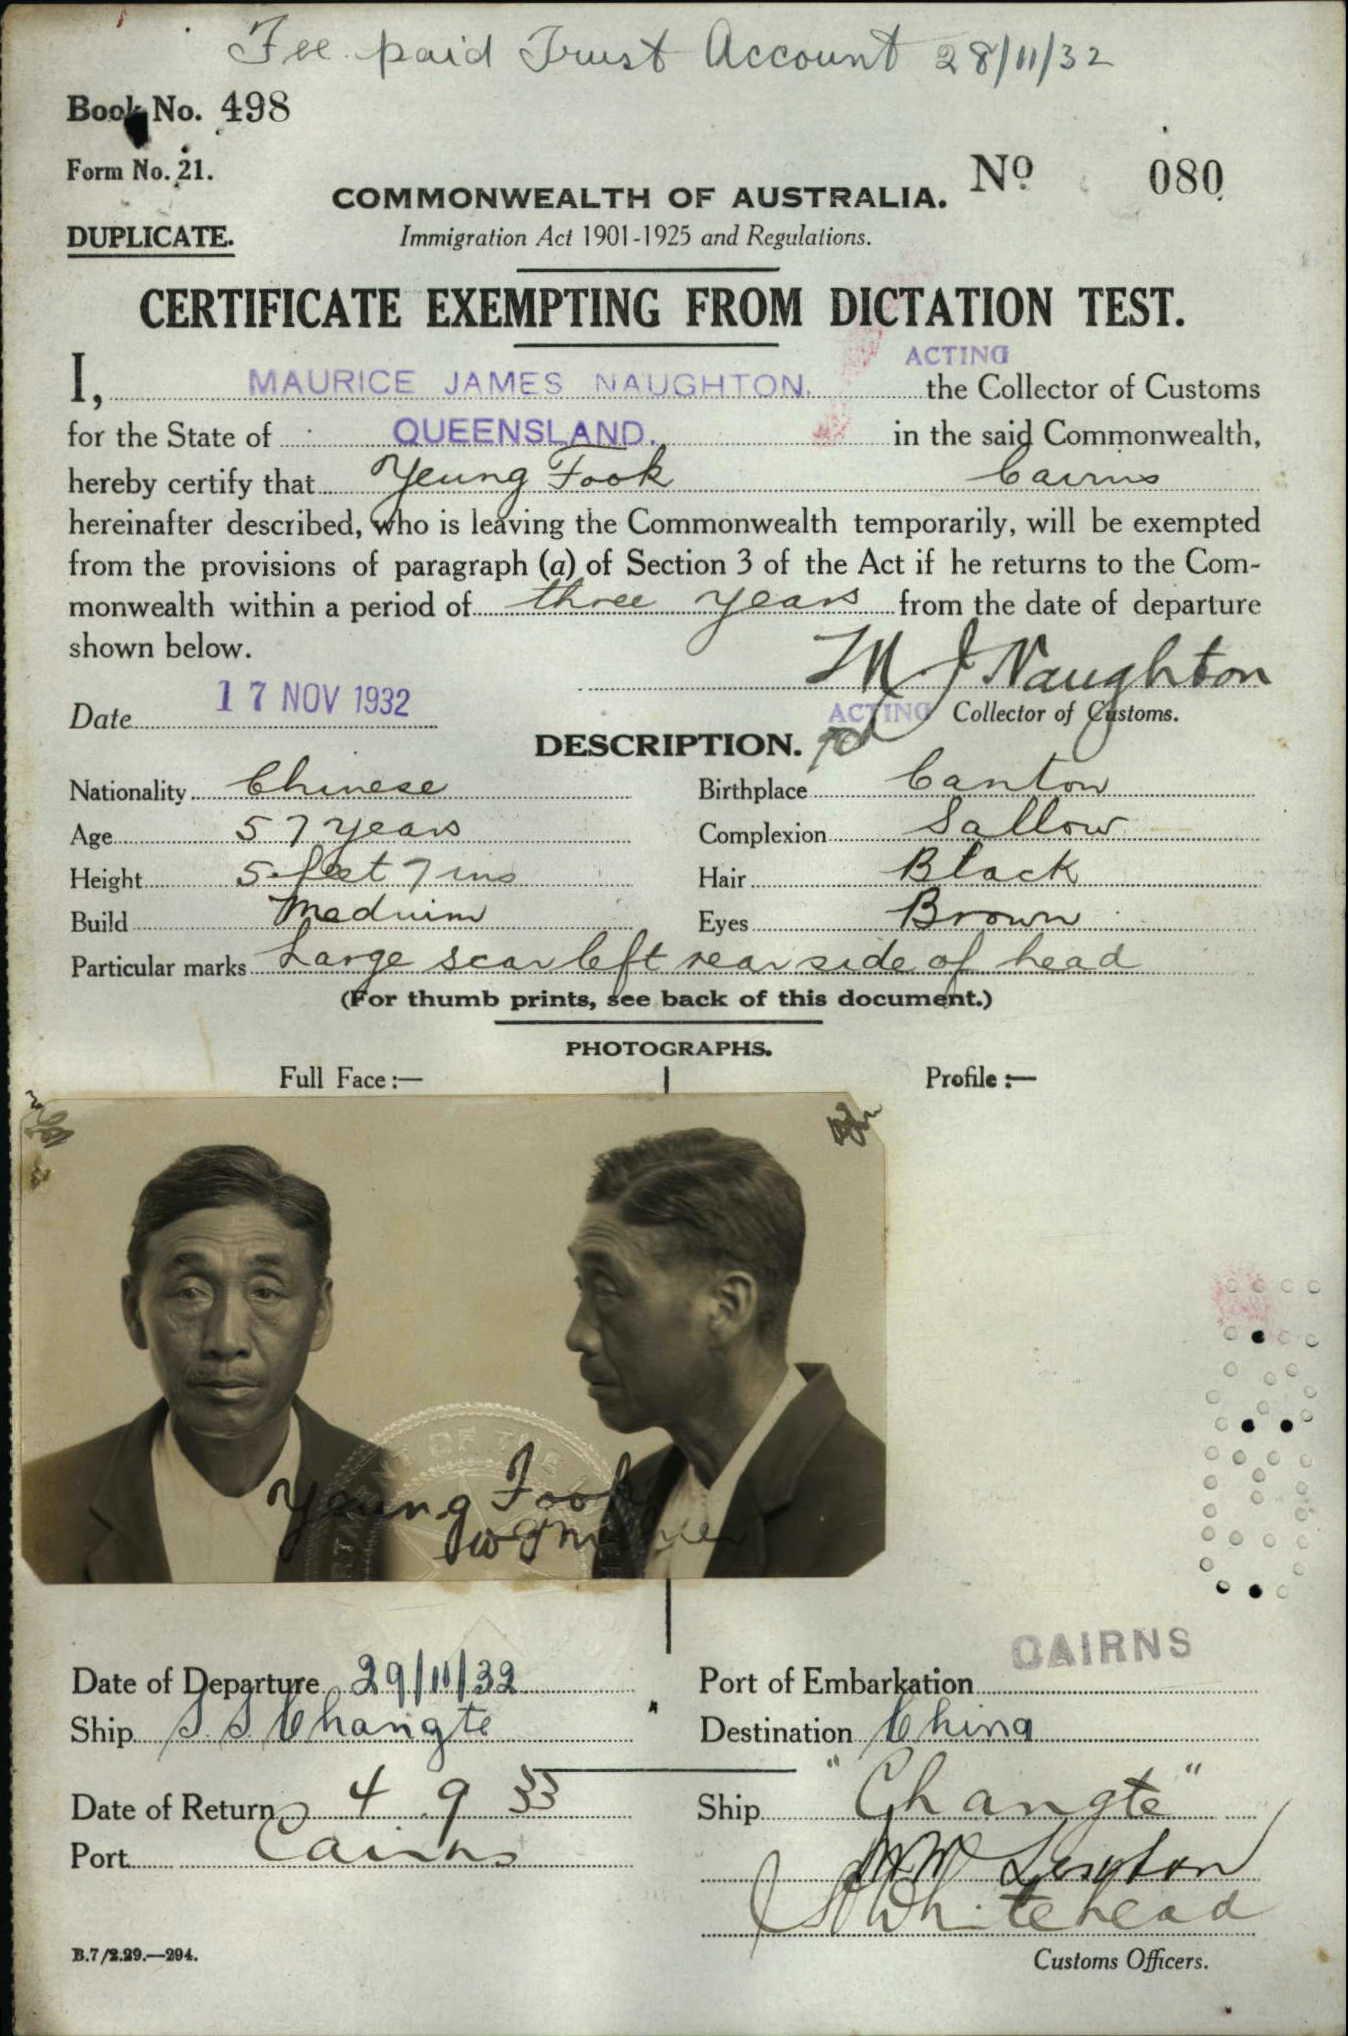 Fee paid Trust Account 28/11/32
Book No. 498
Form No. 21.
No 080
COMMONWEALTH OF AUSTRALIA.
DUPLICATE.
Immigration Act 1901-1925 and Regulations.
CERTIFICATE EXEMPTING FROM DICTATION TEST.
ACTING
I, MAURICE JAMES NAUGHTON. the Collector of Customs
for the State of QUEENSLAND. in the said Commonwealth,
hereby certify that Yeung Fook Cairns
hereinafter described, who is leaving the Commonwealth temporarily, will be exempted
from the provisions of paragraph (a) of Section 3 of the Act if he returns to the Com-
monwealth within a period of three years from the date of departure
shown below.
M J Naughton
Date 17 NOV 1932
ACTING Collector of Customs.
DESCRIPTION.
Nationality Chinese Birthplace Canton
Age 57 years Complexion Sallow
Height 5 feet 7 ins Hair Black
Build Meduim Eyes Brown
Particular marks Large scar left rear side of head
(For thumb prints, see back of this document.)
PHOTOGRAPHS.
Full Face :— Profile :—
Yeung Fook
Date of Departure 29/11/32 Port of Embarkation CAIRNS
Ship S.S. Changte Destination China
Date of Return 4 9 33 Ship "Changte"
Port Cairns
Whitehead
B.7/2.29.—294.
Customs Officers.